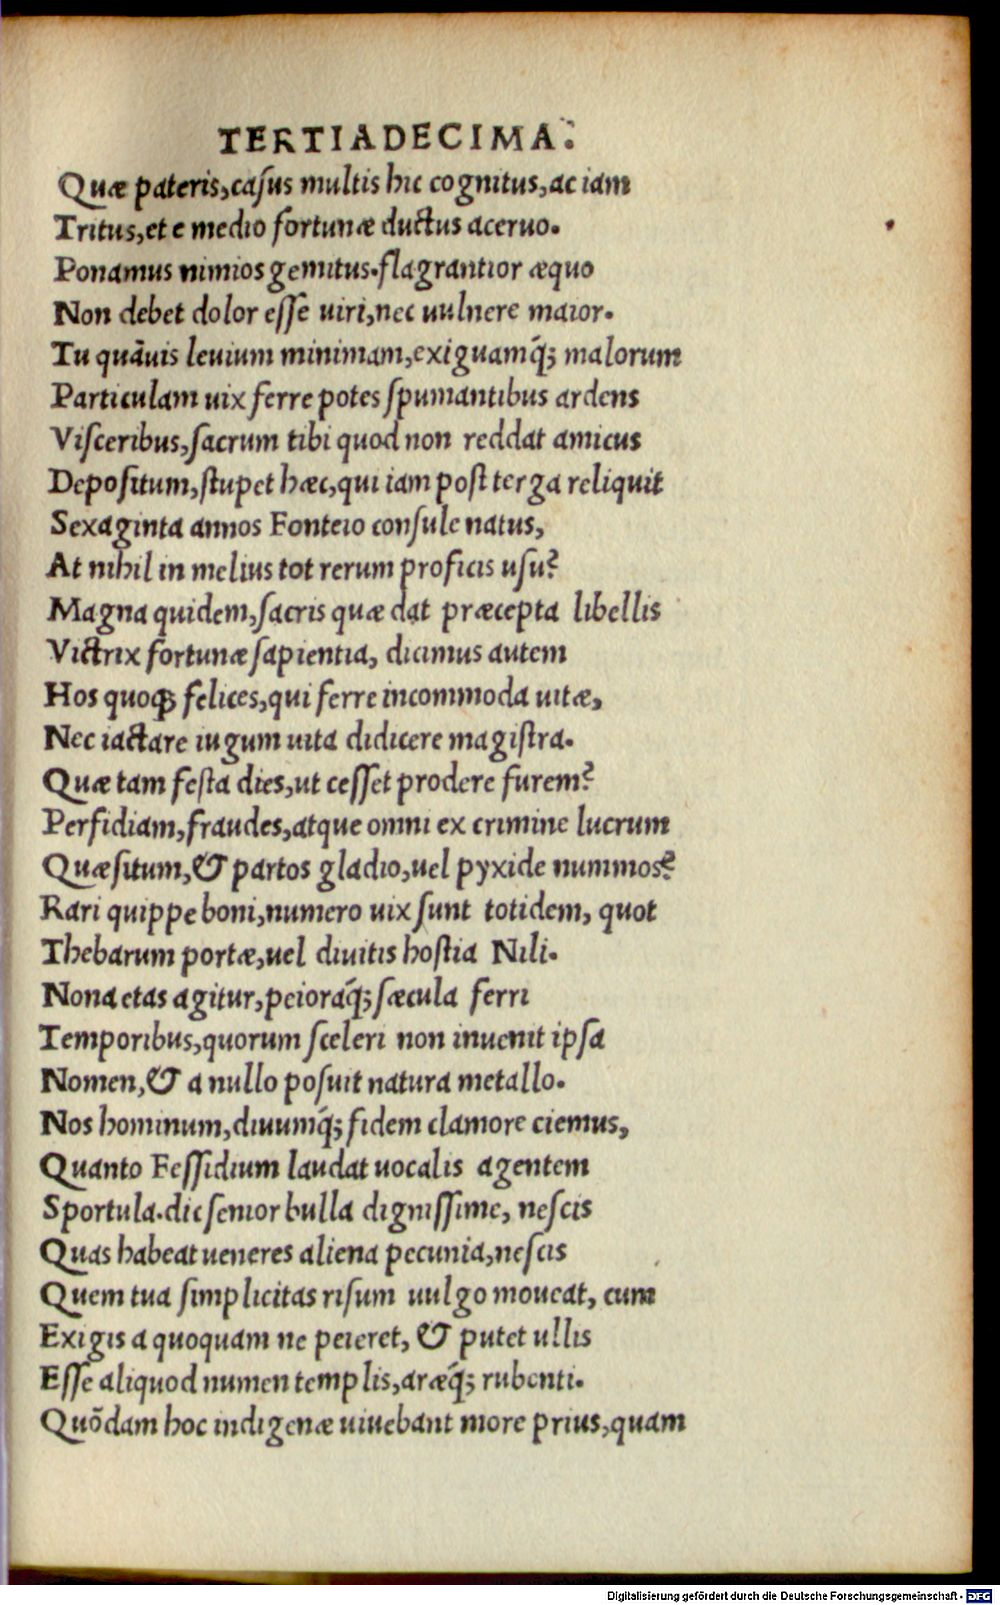 TERTIADECIMA.
Quæ pateris,casus multis hic cognitus,ac iam
Tritus,et e medio fortunæ ductus aceruo.
Ponamus nimios gemitus.flagrantior æquo
Non debet dolor esse uiri,nec uulnere maior.
Tu quāuis leuium minimam,exiguamq́; malorum
Particulam uix ferre potes spumantibus ardens
Visceribus,sacrum tibi quod non reddat amicus
Depositum,stupet hæc,qui iam post terga reliquit
Sexaginta annos Fonteio consule natus,
At nihil in melius tot rerum proficis usu?
Magna quidem,sacris quæ dat præcepta libellis
Victrix fortunæ sapientia, dicimus autem
Hos quoq; felices,qui ferre incommoda uitæ,
Nec iactare iugum uita didicere magistra.
Quæ tam festa dies,ut cesset prodere furem?
Perfidiam,fraudes,atque omni ex crimine lucrum
Quæsitum,& partos gladio,uel pyxide nummos?
Rari quippe boni,numero uix sunt totidem, quot
Thebarum portæ,uel diuitis hostia Nili.
Nona etas agitur,peioraq́; sæcula ferri
Temporibus,quorum sceleri non inuenit ipsa
Nomen,& a nullo posuit natura metallo.
Nos hominum,diuumq́; fidem clamore ciemus,
Quanto Fessidium laudat uocalis agentem
Sportula.dic senior bulla dignissime, nescis
Quas habeat ueneres aliena pecunia,nescis
Quem tua simplicitas risum uulgo moueat, cum
Exigis a quoquam ne peieret, & putet ullis
Esse aliquod numen templis,aræq́; rubenti.
Quōdam hoc indigenæ uiuebant more prius,quam
Digitalisierung gefördert durch die Deutsche Forschungsgemeinschaft - DFG